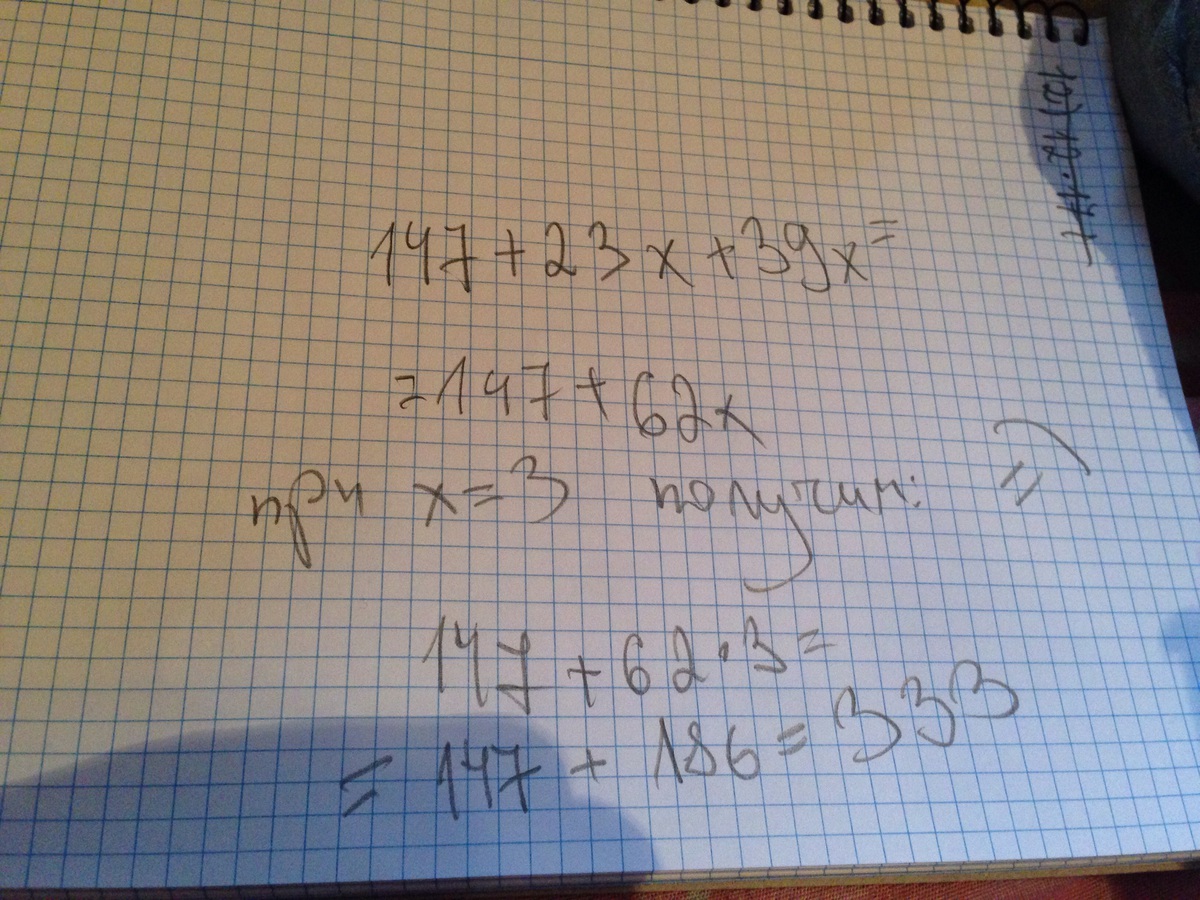 147+23x+39x=
=147+62x
при x=3 получим: =)
147+62·3=
=147+186=333